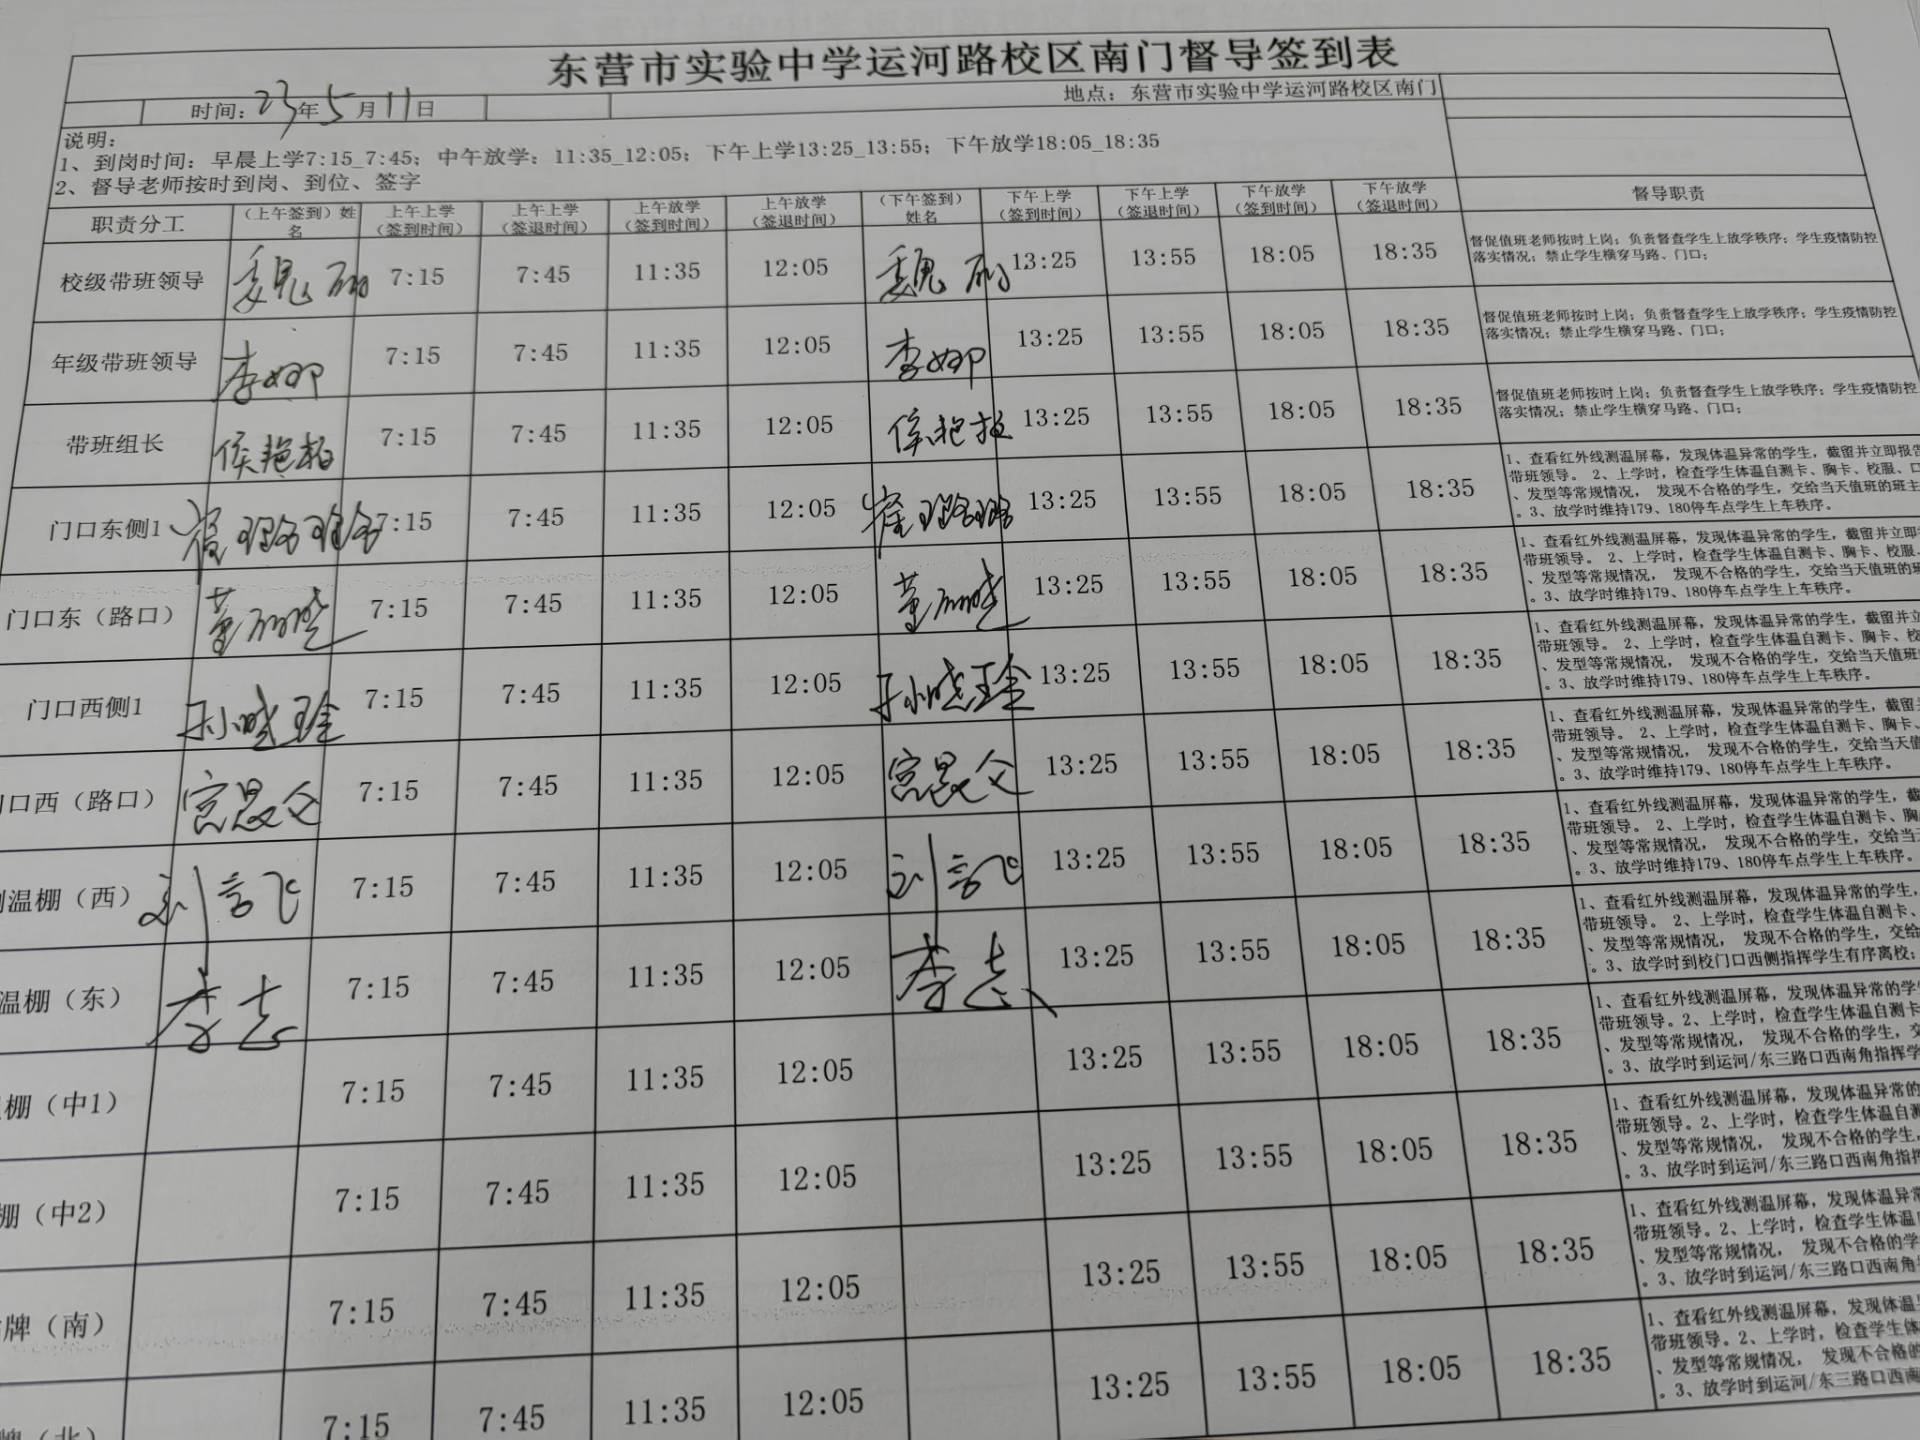 东营市实验中学运河路校区南门督导签到表
时间：23年5月11日 地点：东营市实验中学运河路校区南门
说明：
1、到岗时间：早晨上学7:15_7:45；中午放学：11:35_12:05；下午上学13:25_13:55；下午放学18:05_18:35
2、督导老师按时到岗、到位、签字
职责分工 （上午签到）姓名 上午上学（签到时间） 上午上学（签退时间） 上午放学（签到时间） 上午放学（签退时间） （下午签到）姓名 下午上学（签到时间） 下午上学（签退时间） 下午放学（签到时间） 下午放学（签退时间） 督导职责
校级带班领导 魏丽 7:15 7:45 11:35 12:05 魏丽 13:25 13:55 18:05 18:35 督促值班老师按时上岗；负责督查学生上放学秩序；学生疫情防控
落实情况；禁止学生横穿马路、门口；
年级带班领导 李娜 7:15 7:45 11:35 12:05 李娜 13:25 13:55 18:05 18:35 督促值班老师按时上岗；负责督查学生上放学秩序；学生疫情防控
落实情况；禁止学生横穿马路、门口；
带班组长 侯艳 7:15 7:45 11:35 12:05 侯艳 13:25 13:55 18:05 18:35 督促值班老师按时上岗；负责督查学生上放学秩序；学生疫情防控
落实情况；禁止学生横穿马路、门口；
门口东侧1 崔璐璐 7:15 7:45 11:35 12:05 崔璐璐 13:25 13:55 18:05 18:35 1、查看红外线测温屏幕，发现体温异常的学生，截留并立即报告
带班领导。 2、上学时，检查学生体温自测卡、胸卡、校服、口
、发型等常规情况， 发现不合格的学生，交给当天值班的班主
。3、放学时维持179、180停车点学生上车秩序。
门口东（路口） 董丽晓 7:15 7:45 11:35 12:05 董丽晓 13:25 13:55 18:05 18:35 1、查看红外线测温屏幕，发现体温异常的学生，截留并立即
带班领导。 2、上学时，检查学生体温自测卡、胸卡、校服、
、发型等常规情况， 发现不合格的学生，交给当天值班的班
。3、放学时维持179、180停车点学生上车秩序。
门口西侧1 孙晓玲 7:15 7:45 11:35 12:05 孙晓玲 13:25 13:55 18:05 18:35 1、查看红外线测温屏幕，发现体温异常的学生，截留并立
带班领导。 2、上学时，检查学生体温自测卡、胸卡、校
、发型等常规情况， 发现不合格的学生，交给当天值班
。3、放学时维持179、180停车点学生上车秩序。
口西（路口） 宫文 7:15 7:45 11:35 12:05 宫文 13:25 13:55 18:05 18:35 1、查看红外线测温屏幕，发现体温异常的学生，截留并
带班领导。 2、上学时，检查学生体温自测卡、胸卡、
、发型等常规情况， 发现不合格的学生，交给当天值
。3、放学时维持179、180停车点学生上车秩序。
测温棚（西） 刘言飞 7:15 7:45 11:35 12:05 刘言飞 13:25 13:55 18:05 18:35 1、查看红外线测温屏幕，发现体温异常的学生，截
带班领导。 2、上学时，检查学生体温自测卡、胸
、发型等常规情况， 发现不合格的学生，交给当
。3、放学时维持179、180停车点学生上车秩序。
温棚（东） 李志 7:15 7:45 11:35 12:05 李志 13:25 13:55 18:05 18:35 1、查看红外线测温屏幕，发现体温异常的学生，
带班领导。 2、上学时，检查学生体温自测卡、
、发型等常规情况， 发现不合格的学生，交给
。3、放学时到校门口西侧指挥学生有序离校；
棚（中1） 7:15 7:45 11:35 12:05 13:25 13:55 18:05 18:35 1、查看红外线测温屏幕，发现体温异常的学
带班领导。2、上学时，检查学生体温自测卡
、发型等常规情况， 发现不合格的学生，交
。3、放学时到运河/东三路口西南角指挥学
棚（中2） 7:15 7:45 11:35 12:05 13:25 13:55 18:05 18:35 1、查看红外线测温屏幕，发现体温异常的
带班领导。2、上学时，检查学生体温自测
、发型等常规情况， 发现不合格的学生，
。3、放学时到运河/东三路口西南角指挥
牌（南） 7:15 7:45 11:35 12:05 13:25 13:55 18:05 18:35 1、查看红外线测温屏幕，发现体温异常
带班领导。2、上学时，检查学生体温
、发型等常规情况， 发现不合格的学
。3、放学时到运河/东三路口西南角
牌（北） 7:15 7:45 11:35 12:05 13:25 13:55 18:05 18:35 1、查看红外线测温屏幕，发现体温
带班领导。2、上学时，检查学生体
、发型等常规情况， 发现不合格的
。3、放学时到运河/东三路口西南